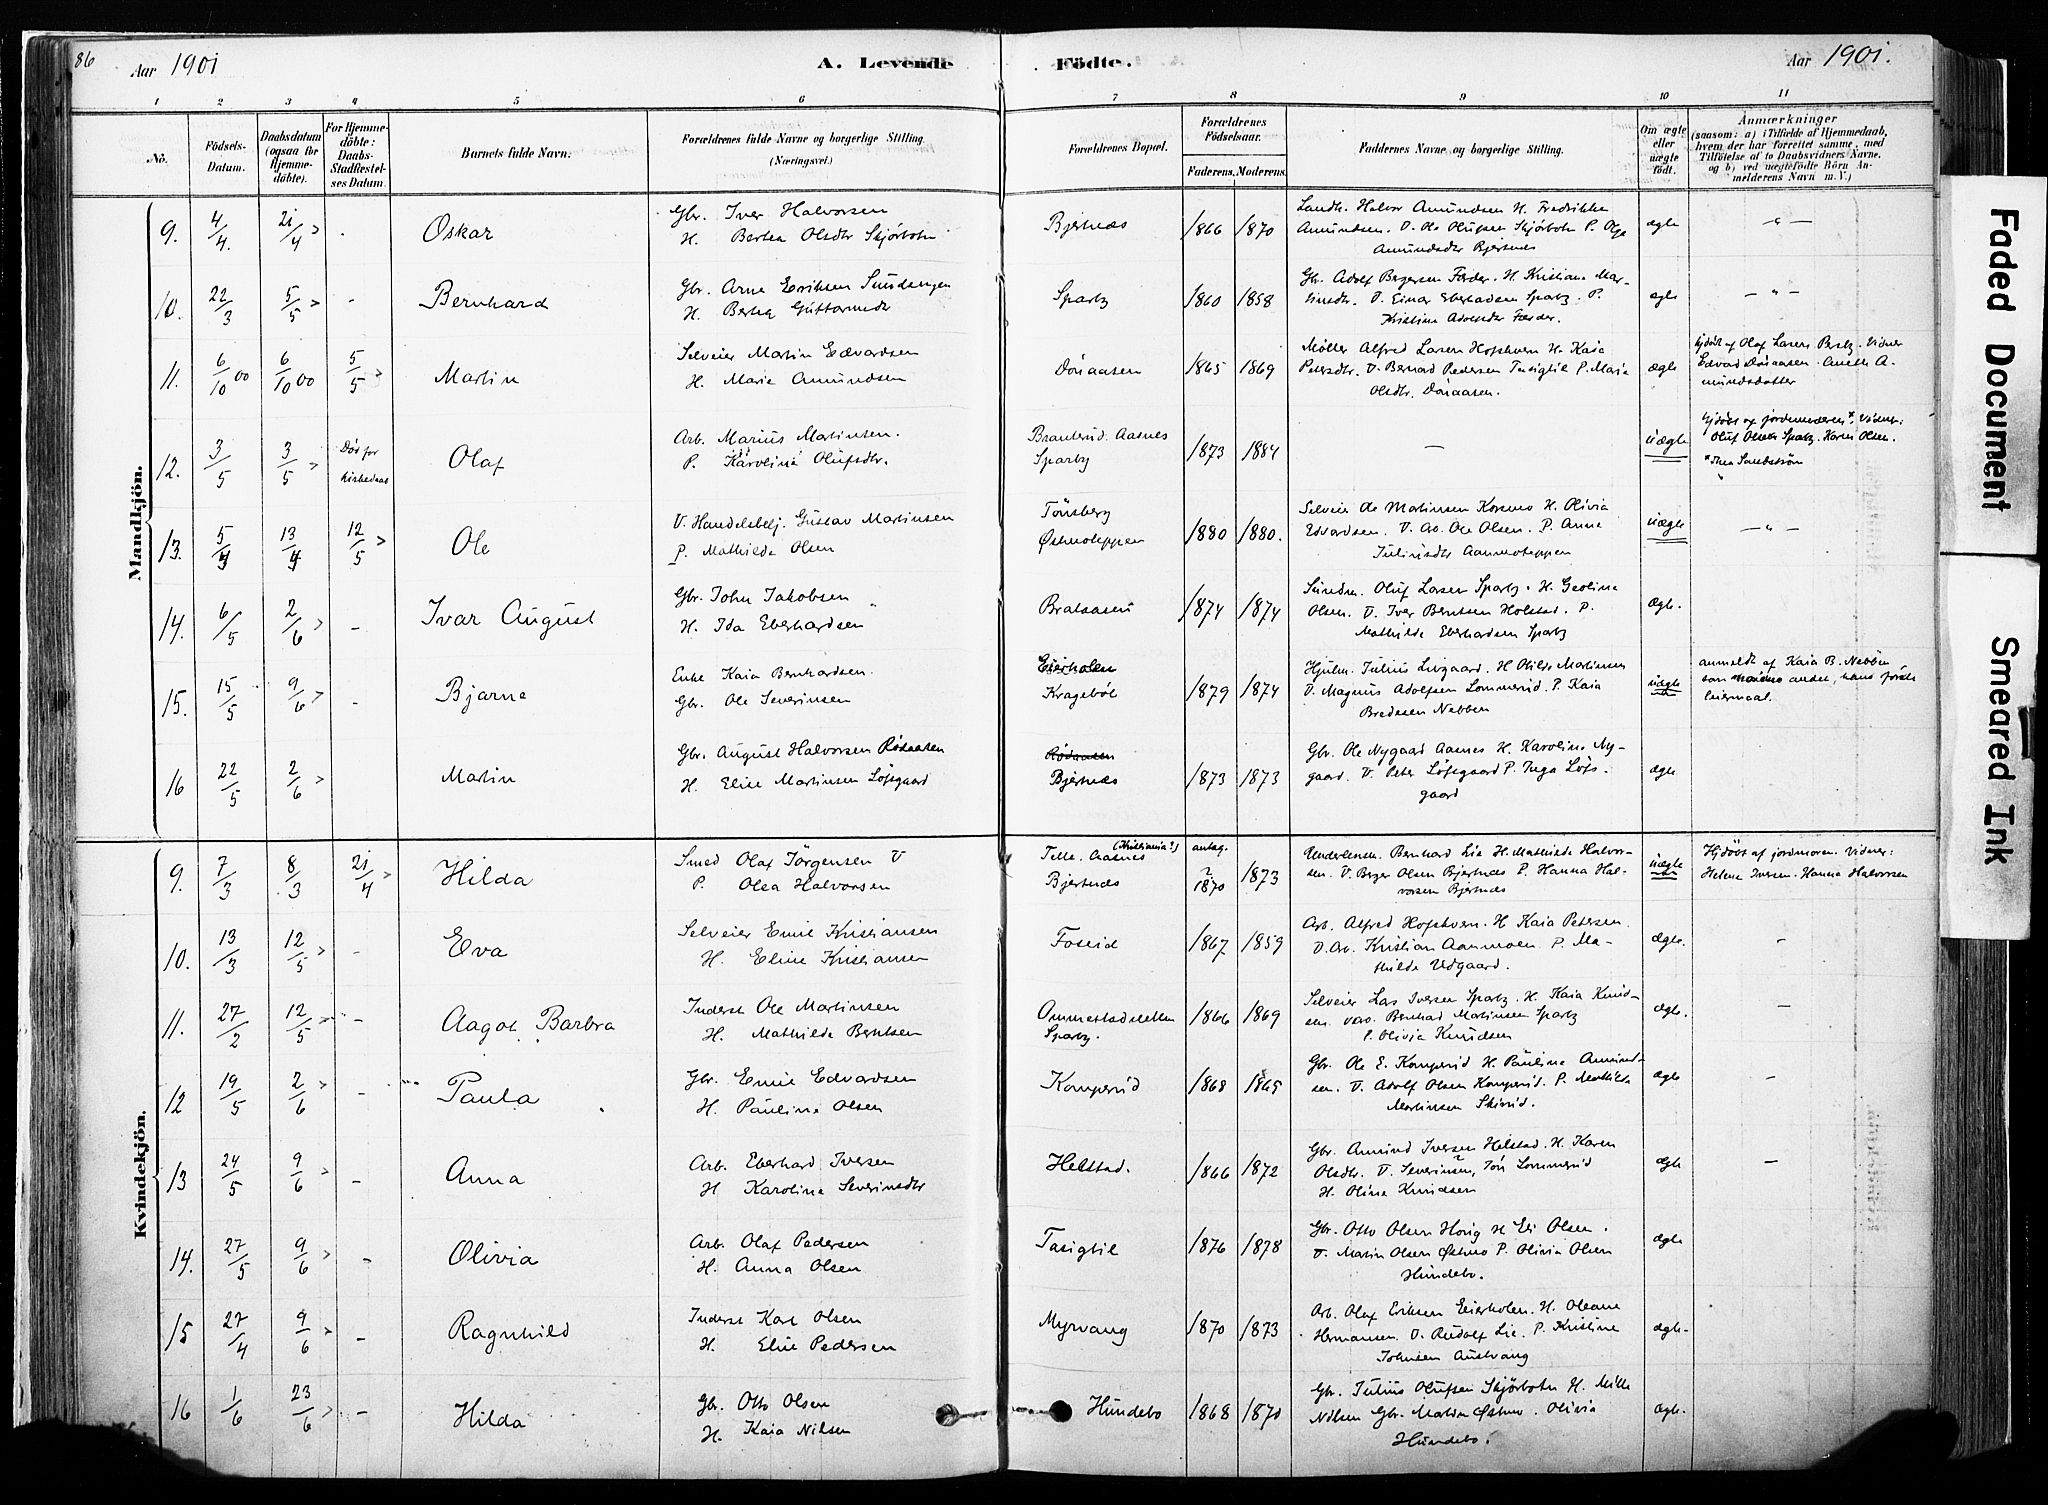 86
Aar 1901
A. Levende
Födte.
Aar 1901.
1 2 3 4 5 6 7 8 9 10 11
No.
Födsels-
Datum.
Daabsdatum
(ogsaa for
Hjemme-
döbte).
For Hjemme-
döbte:
Daabs-
Stadfæstel-
ses Datum.
Barnets fulde Navn.
Forældrenes fulde Navne og borgerlige Stilling.
(Næringsvei.)
Forældrenes Bopæl.
Forældrenes
Födselsaar.
Faderens. Moderens.
Faddernes Navne og borgerlige Stilling.
Om ægte
eller
uægte
födt.
Anmærkninger
(saasom: a) i Tilfælde af Hjemmedaab,
hvem der har forrettet samme, med
Tilföielse af to Daabsvidners Navne,
og b) ved uægtefödte Börn An-
melderens Navn m. V.)
Mandkjön.
9. 4/4. 21/4 > - Oskar
Gbr. Iver Halvorsen
H. Berthea Olsdtr Skjørboth
Bjertnæs
1866 1870
Landh. Halvor Amundsen H. Fredrikke
Amundsen. U. Ole Olufsen Skjørboth P. Olga
Amundsdtr Bjertnes
ægte
- " -
10. 22/3 5/5 > - Bernhard
Gbr. Arne Eriksen Sundengen
H. Berthea Guttormsdtr
Sparby
1860 1858
Gbr. Adolf Bergersen Færder. H. Kristiane Mar-
tinsdtr. U. Einar Eberhardsen Sparby. P.
Kristine Adolfsdtr Færder.
ægte
- " -
11. 6/10 00 6/10 00 5/5 > Martin
Selveier Martin Edvardsen
H. Marie Amundsen
Döviaasen
1865 1869
Møller Alfred Larsen Hofshvern H. Kaia
Petersdtr. U. Bernard Pedersen Tasigtil P. Maria
Olsdtr. Döviaasen.
ægte
hjdöbt af Olaf Larsen Berby. Vidner
Edvard Döviaasen. Anette A-
mundsdatter
12. 3/5 3/5 > Död før
kirkedaab
Olaf
Arb. Marius Martinsen.
P. Karoline Olufsdtr.
Branterud. Aasnes
Sparby
1873 1884
-
uægte
hjdöbt af jordemoderen* Vidner:
Oluf Olsen Sparby. Karen Olsen.
*Thea Sandström
13. 5/4 13/4 12/5 > Ole
U. Handelsbetj. Gustav Martinsen
P. Mathilde Olsen
Tönsberg
Østmoteppen
1880 1880.
Selveier Ole Martinsen Korsmo H. Olivia
Edvardsen. U. Arb. Ole Olsen. P. Anna
Juliusdtr Aanmoteppen
uægte
- " -
14. 6/5 2/6 > - Ivar August
Gbr. John Jakobsen
H. Ida Eberhardsen
Brataasen
1874 1874
Snedk. Oluf Larsen Sparby. H. Geoline
Olsen. U. Iver Berntsen Holstad. P.
Mathilde Eberhardsen Sparby
ægte.
15. 15/5 9/6 > Bjarne
Enke Kaia Bernhardsen.
Gbr. Ole Severinsen
Eierholen
Kragebøl
1879 1874
Hjulm. Julius Livgaard. H Otilde Martinsen
U. Magnus Adolfsen Lommerud. P. Kaia
Bredesen Nebben
uægte
anmeldt af Kaia B. Nebben
som andet, hans første
leiermaal.
16 22/5 2/6 > Martin
Gbr. August Halvorsen Rödaasen
H. Eline Martinsen Löfsgaard
Rödaasen
Bjertnæs
1873 1873
Gbr. Ole Nygaard Aasnes H. Karoline Ny-
gaard. U. Peter Löfsgaard P. Inga Löfs-
gaard
ægte
Kvindekjön.
9. 7/3 8/3 21/4 > Hilda
Smed Olaf Jörgensen U
P. Olea Halvorsen
Telle. Aasnes (Kristiania?)
Bjertnæs
antag.
?
1870 1873
Underlensm. Bernhard Lie H. Mathilde Halvor-
sen. U. Berger Olsen Bjertnes P. Hanna Hal-
vorsen Bjertnæs
uægte
Hjdöbt af jordmoren. Vidner:
Helene Iversen. Hanna Halvorsen
10. 13/3 12/5 > - Eva
Selveier Emil Kristiansen
H. Eline Kristiansen
Foseid
1867 1859
Arb. Alfred Hofshvern. H Kaia Petersen.
U. Arb. Kristian Aanmoen P. Ma-
thilde Udgaard.
ægte.
-
11. 27/2 12/5 > - Aagot Barbra
Inderst Ole Martinsen
H. Mathilde Berntsen
Ommestadsletten
Sparby.
1866 1869
Selveier Lars Iversen Sparby. H. Kaia Knud-
sen. U. Bernhard Martinsen Sparby
P. Olivia Knudsen
ægte.
-
12 19/5 2/6 > - Paula
Gbr. Emil Edvardsen
H. Pauline Olsen
Komperud
1868 1865
Gbr. Ole E. Komperud H. Pauline Amund-
sen. U. Adolf Olsen Komperud. P. Mathilda
Martinsen Skivud.
ægte
-
13 24/5 9/6 > - Anna
Arb. Eberhard Iversen
H Karoline Severinsdtr
Helstad.
1866 1872
Gbr. Amund Iversen Helstad. H. Karen
Olsdtr. U. Severinsen, Tön Lommerud
H. Oline Knudsen
ægte
-
14. 27/5 9/6 > - Olivia
Arb. Olaf Pedersen
H. Anna Olsen
Tasigtil
1876 1878
Gbr. Otto Olsen Horig H Eli Olsen.
U. Martin Olsen Østmo P. Olivia Olsen
Hundebo.
ægte
15 27/4 9/6 > - Ragnhild
Inderst Karl Olsen
H. Elise Pedersen
Myrvang
1870 1873
Arb. Olaf Eriksen Eierholen. H. Oleane
Hermansen. U. Rudolf Lie. P. Kristine
Johnsen Austvang
ægte.
16 1/6 23/6 > - Hilda
Gbr. Otto Olsen
H. Kaia Nilsen
Hundebo
1868 1870
Gbr. Julius Olufsen Skjørboth H. Mille
Nilsen Gbr. Martin Østmo. Olivia
Hundebo.
ægte.
Faded Document
Smeared Ink